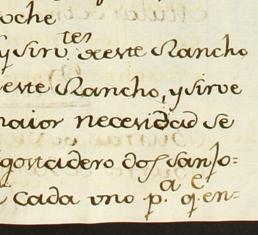 oche
y sirv.tes deste Rancho
este Rancho, y sirve
maior necesidad se
gostadero dos sanjo=
cada uno p.a q.e en=